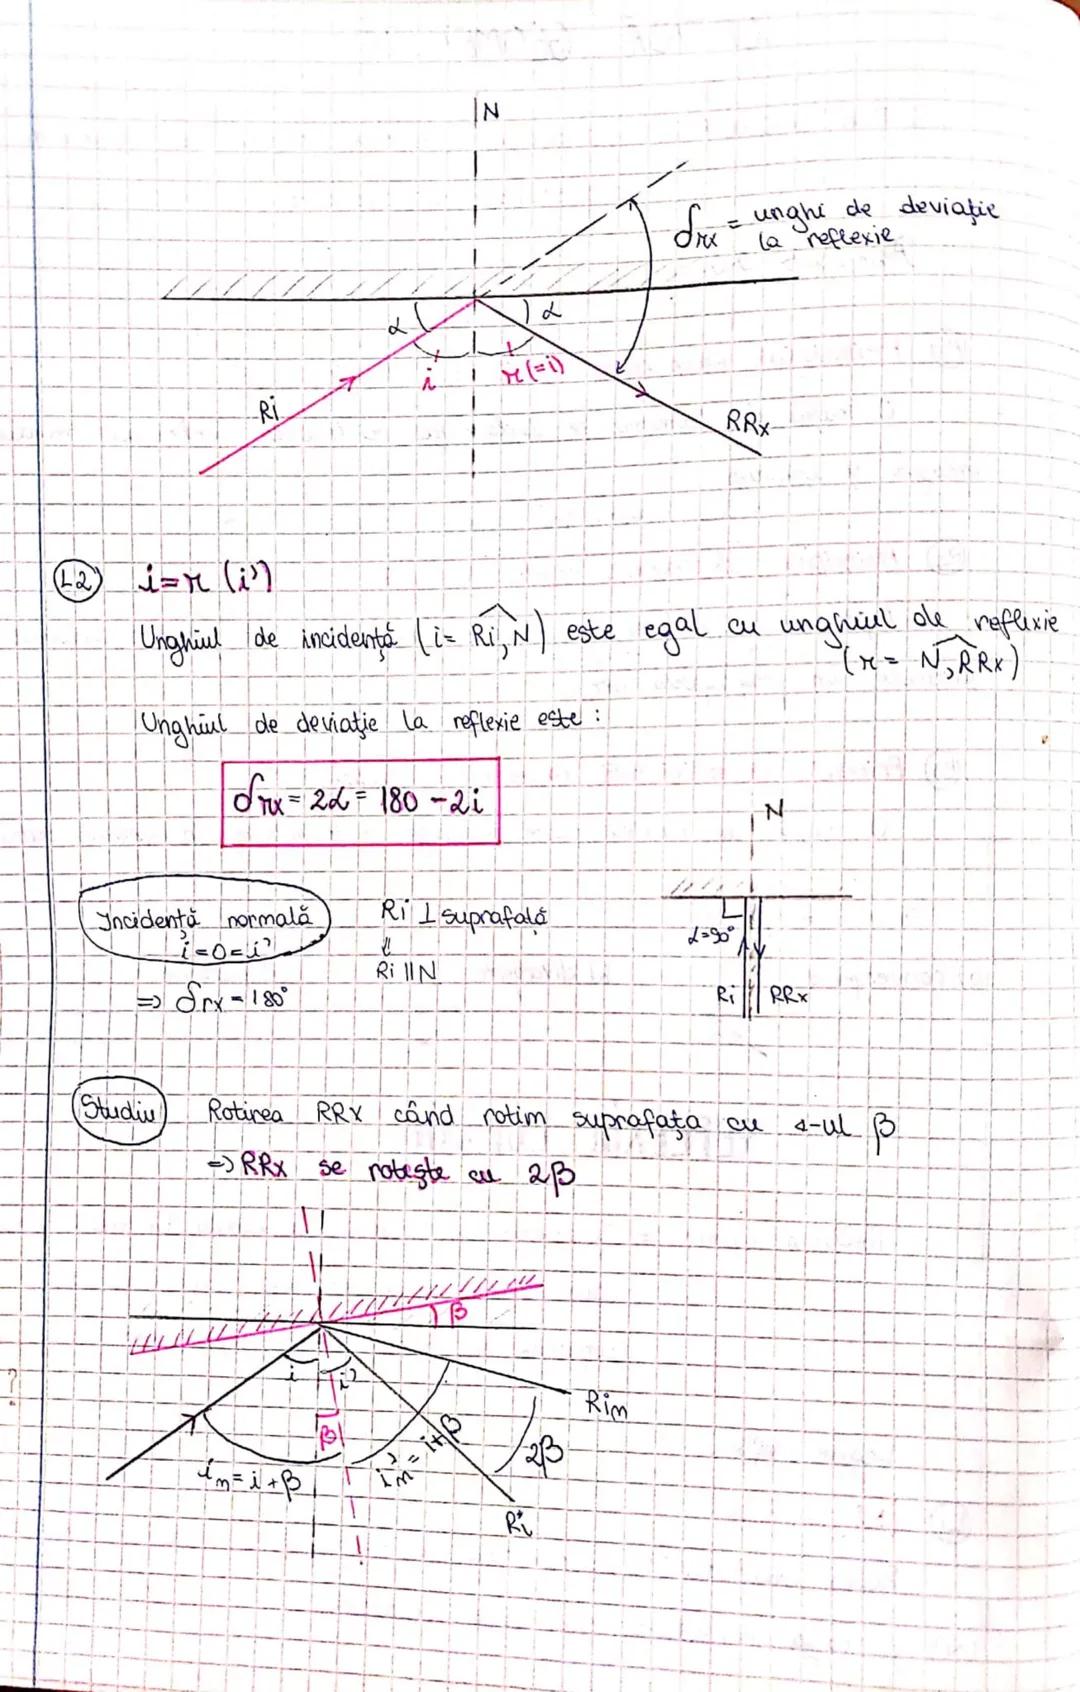 N
δrx = unghi de deviație
la reflexie
α
α
i
r(=i)
Ri
RRx
L2) i=r (i')
Unghiul de incidență (i= Ri,N) este egal cu unghiul de reflexie
(r= N,RRx)
Unghiul de deviație la reflexie este :
δrx = 2α = 180 - 2i
N
Incidență normală
i=0=i'
Ri ⊥ suprafață
⇓
Ri || N
=> δrx = 180°
α=90°
Ri
RRx
Studiu
Rotirea RRx când rotim suprafața cu ∢-ul β
=> RRx se rotește cu 2β
β
i
i'
β
Rin
in = i+β
i'n = i+β
2β
Ri
?